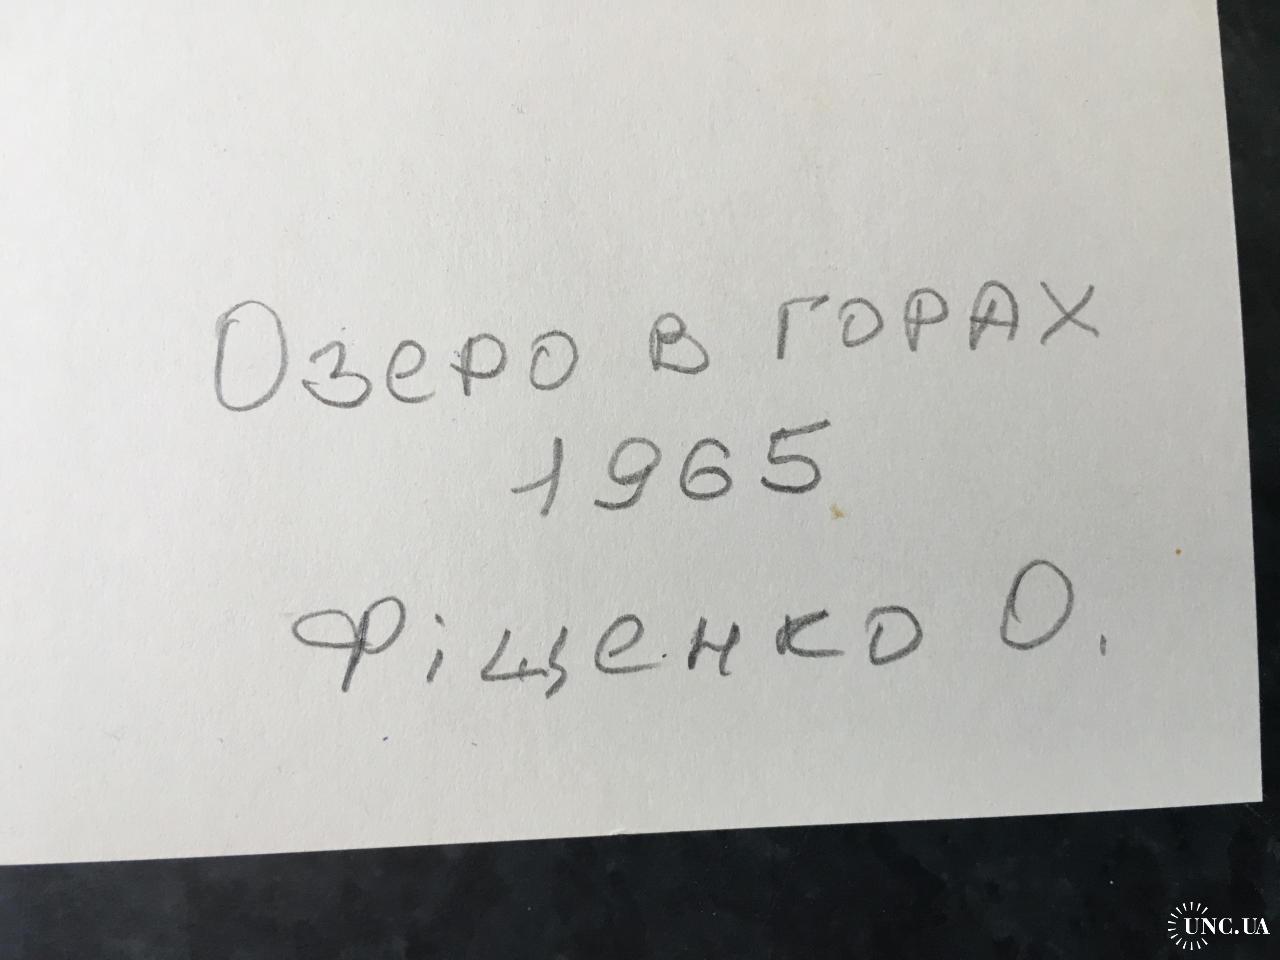 Озеро в горах
1965
Фіщенко О.
UNC.UA